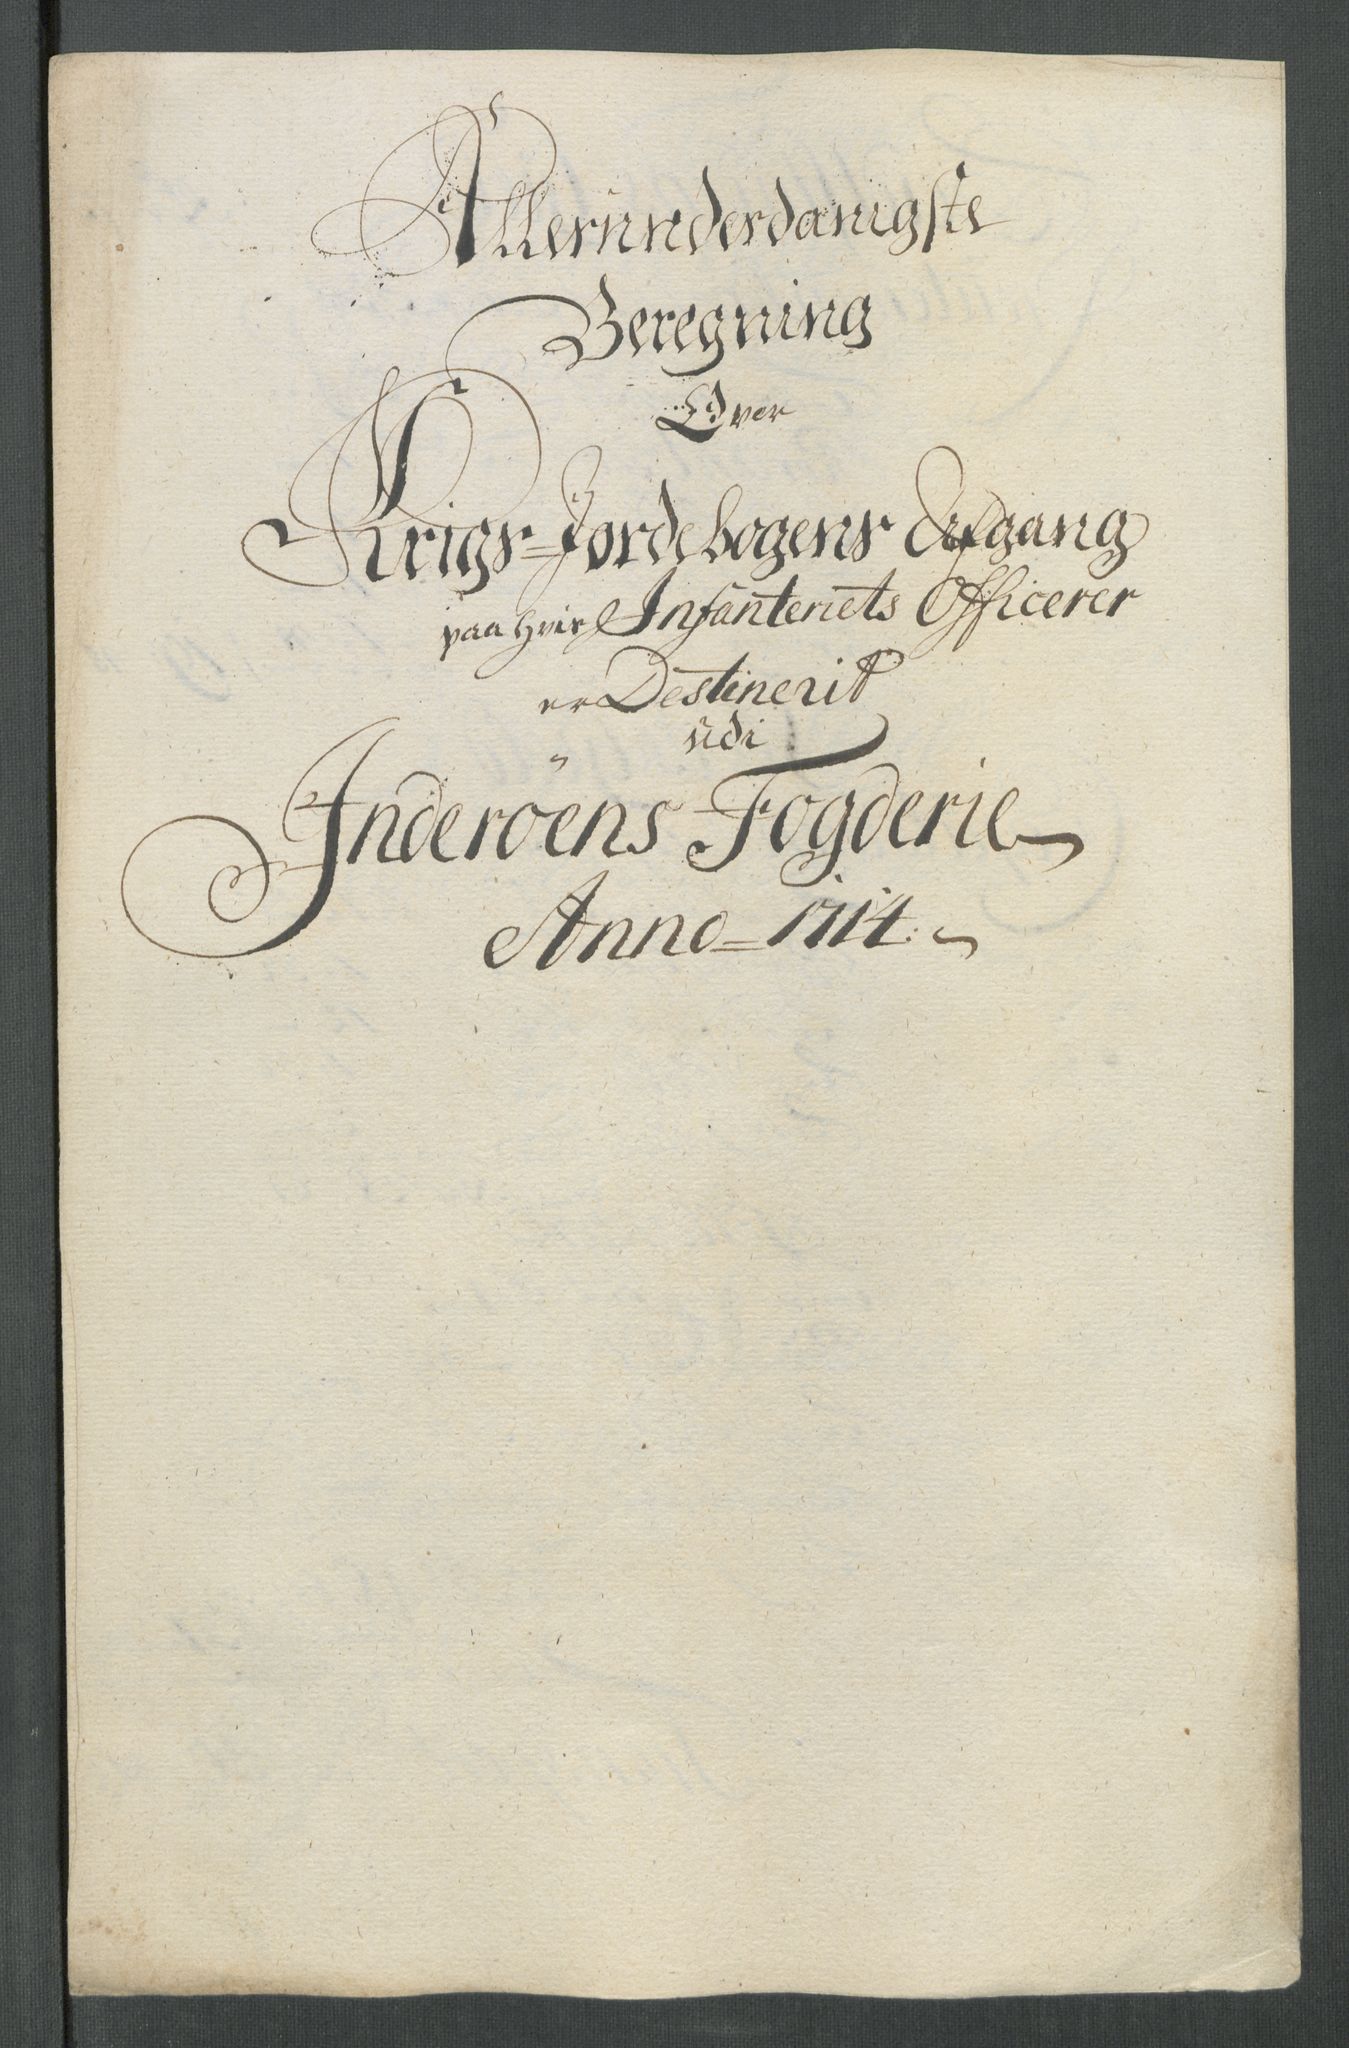 Allerunderdanigste
Beregning
Over
Krigs=Jordebogens Afgang
paa hvis Infanteriets Officerer
er Destinerit
udi
Inderöens Fogderie
Anno=1714.